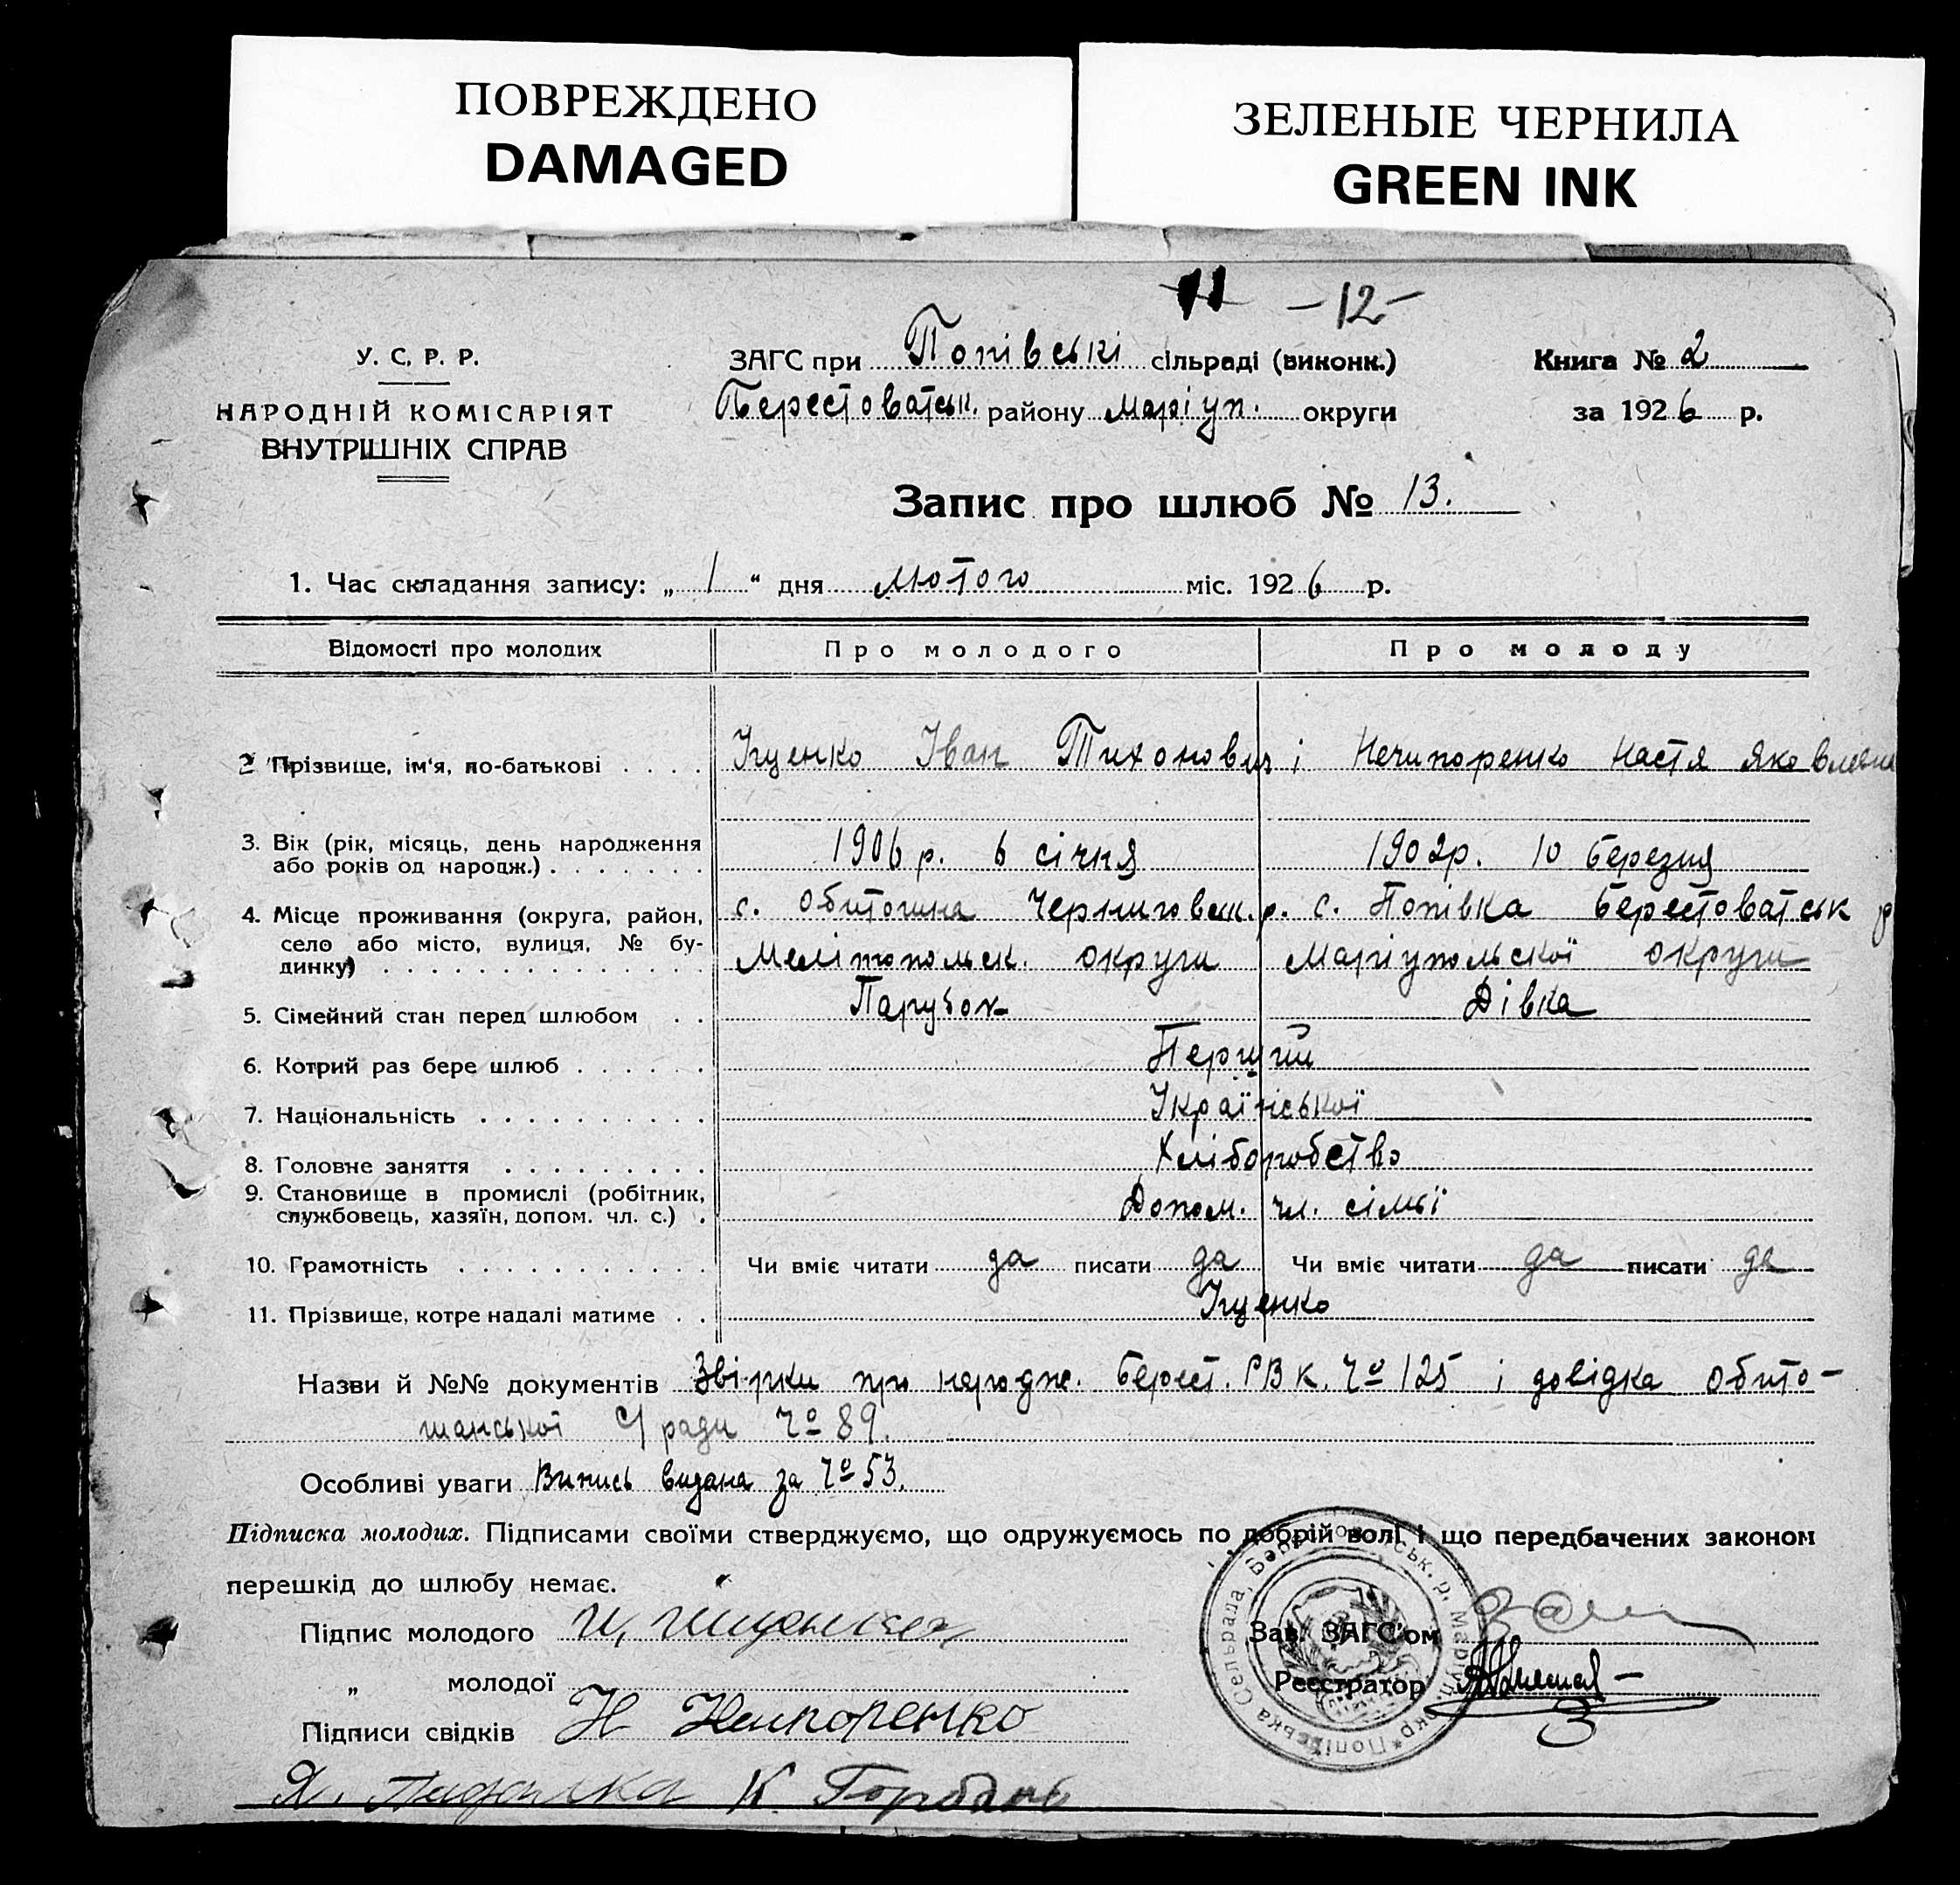 ПОВРЕЖДЕНО
DAMAGED
ЗЕЛЕНЫЕ ЧЕРНИЛА
GREEN INK
11 -12-
У. С. Р. Р.
НАРОДНІЙ КОМІСАРІЯТ
ВНУТРІШНІХ СПРАВ
ЗАГС при Попівські сільраді (виконк.)
Берестоватськ. району Маріуп. округи
Книга № 2
за 1926 р.
Запис про шлюб № 13.
1. Час складання запису: „1“ дня лютого міс. 1926 р.
Відомості про молодих Про молодого Про молоду
2 Прізвище, ім'я, по-батькові . . . . Іщенко Іван Тихонович і Нечипоренко Настя Яковлевна
3. Вік (рік, місяць, день народження
або років од народж.) . . . . . . . 1906 р. 6 січня 1902р. 10 березня
4. Місце проживання (округа, район, с. Обиточна Черниговськ. р. с. Попівка Берестоватськ р
село або місто, вулиця, № бу-
динку) . . . . . . . . . . . . . . Мелітопольск. округи Маріупольскої округи
5. Сімейний стан перед шлюбом . . Парубок Дівка
6. Котрий раз бере шлюб . . . . . . Перший
7. Національність . . . . . . . . . . Української
8. Головне заняття . . . . . . . . . Хліборобство
9. Становище в промислі (робітник,
службовець, хазяїн, допом. чл. с.) . Допом. чл. сімьї
10. Грамотність . . . . . . . . . . . Чи вміє читати да писати да Чи вміє читати да писати да
11. Прізвище, котре надалі матиме . . Іщенко
Назви й №№ документів Звірки про народж. Берест. РВК. Чо 125 і довідка Обито-
чанської С/ради Чо 89.
Особливі уваги Випись видана за Чо 53.
Підписка молодих. Підписами своїми стверджуємо, що одружуємось по добрій волі і що передбачених законом
перешкід до шлюбу немає.
Підпис молодого И, Ищенко
„ молодої
Підписи свідків Н Нечпоренко
Я. К. Горбань
Зав. ЗАГС'ом
Реєстратор
Попівська Сельрада, Берестоватськ. р. Маріуп. окр.